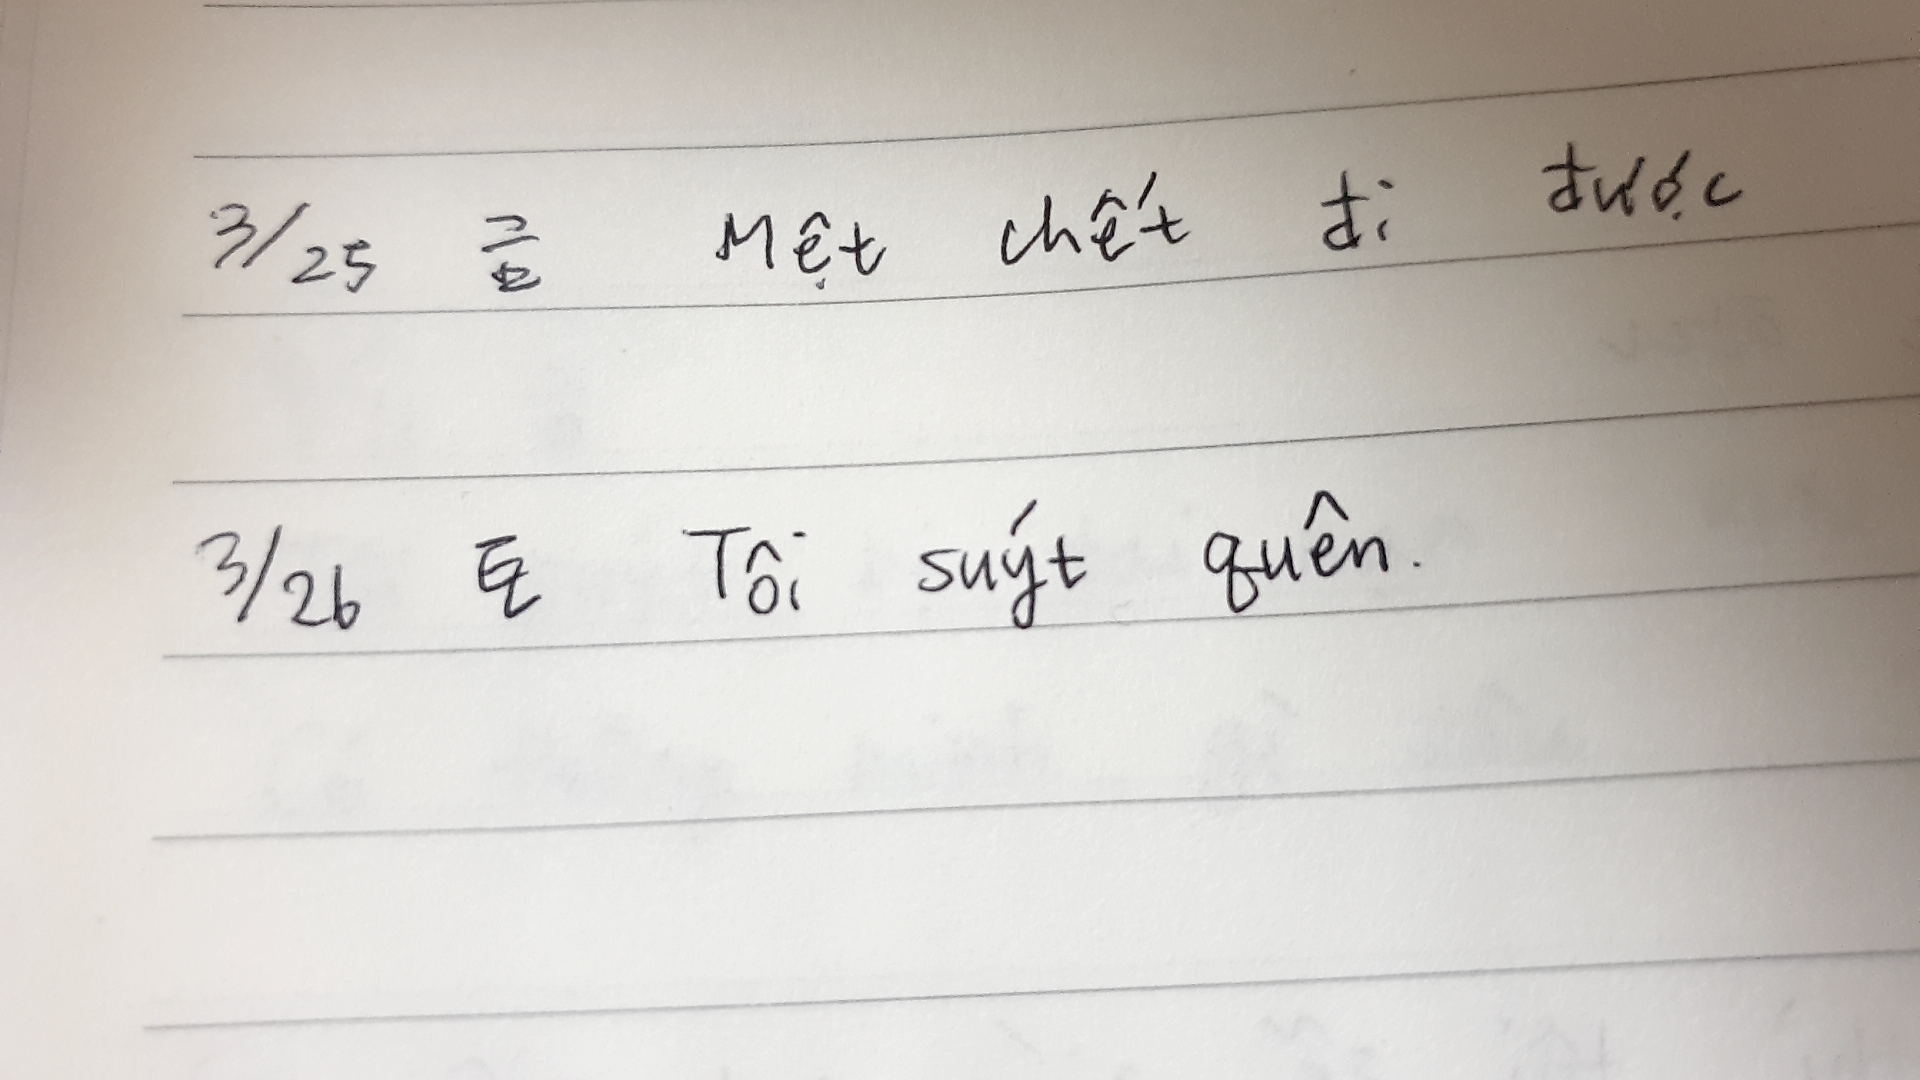 3/25 금 Mệt chết đi được
3/26 토 Tôi suýt quên.